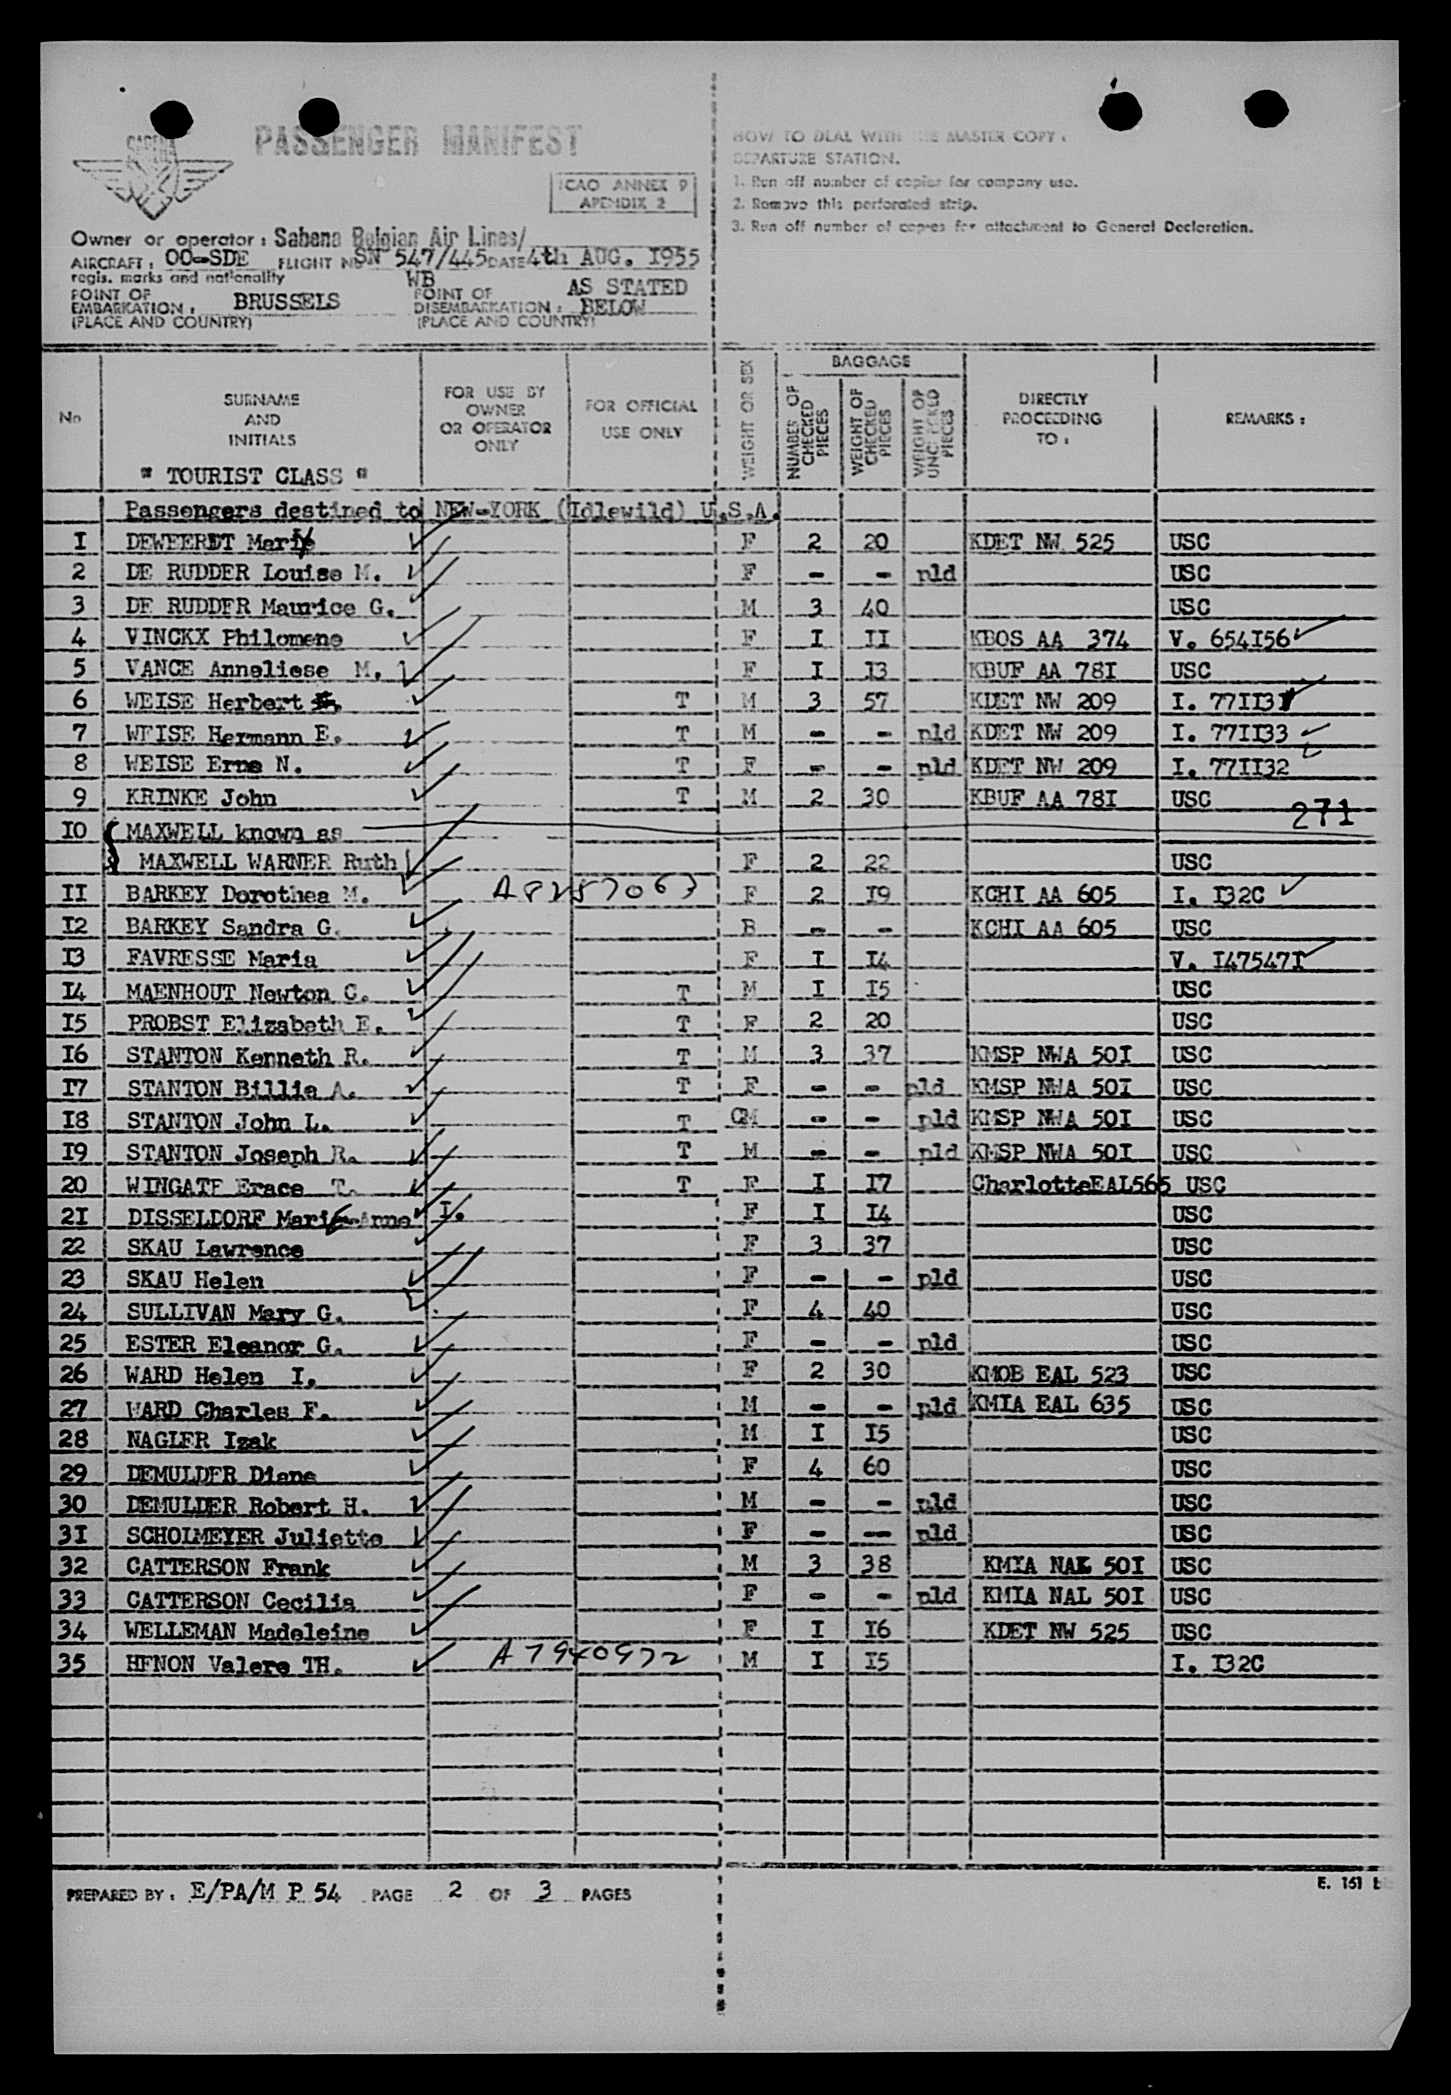 SABENA
PASSENGER MANIFEST
ICAO ANNEX 9
APENDIX 2
Owner or operator : Sabena Belgian Air Lines/
AIRCRAFT : OO-SDE FLIGHT No SN 547/445 DATE 4th AUG. I955
regis. marks and nationality WB
POINT OF EMBARKATION : BRUSSELS POINT OF DISEMBARKATION : AS STATED BELOW
(PLACE AND COUNTRY) (PLACE AND COUNTRY)
HOW TO DEAL WITH THE MASTER COPY :
DEPARTURE STATION.
1. Run off number of copies for company use.
2. Remove this perforated strip.
3. Run off number of copies for attachment to General Declaration.
No SURNAME AND INITIALS FOR USE BY OWNER OR OPERATOR ONLY FOR OFFICIAL USE ONLY WEIGHT OR SEX BAGGAGE NUMBER OF CHECKED PIECES WEIGHT OF CHECKED PIECES WEIGHT OF UNCHECKED PIECES DIRECTLY PROCEEDING TO : REMARKS :
" TOURIST CLASS "
Passengers destined to NEW-YORK (Idlewild) U.S.A.
I DEWEERDT Marie F 2 20 KDET NW 525 USC
2 DE RUDDER Louise M. F - - pld USC
3 DE RUDDER Maurice G. M 3 40 USC
4 VINCKX Philomene F I II KBOS AA 374 V. 654I56
5 VANCE Anneliese M. F I I3 KBUF AA 78I USC
6 WEISE Herbert T M 3 57 KDET NW 209 I. 77II3I
7 WEISE Hermann E. T M - - pld KDET NW 209 I. 77II33
8 WEISE Erna N. T F - - pld KDET NW 209 I. 77II32
9 KRINKE John T M 2 30 KBUF AA 78I USC
271
I0 MAXWELL known as
MAXWELL WARNER Ruth F 2 22 USC
II BARKEY Dorothea M. A8257063 F 2 I9 KCHI AA 605 I. I32C
I2 BARKEY Sandra G. B - - KCHI AA 605 USC
I3 FAVRESSE Maria F I I4 V. I47547I
I4 MAENHOUT Newton C. T M I I5 USC
I5 PROBST Elizabeth E. T F 2 20 USC
I6 STANTON Kenneth R. T M 3 37 KMSP NWA 50I USC
I7 STANTON Billie A. T F - - pld KMSP NWA 50I USC
I8 STANTON John L. T CM - - pld KMSP NWA 50I USC
I9 STANTON Joseph R. T M - - pld KMSP NWA 50I USC
20 WINGATE Erace T. T F I I7 CharlotteEAL565 USC
2I DISSELDORF Marie-Anne I. F I I4 USC
22 SKAU Lawrence F 3 37 USC
23 SKAU Helen F - - pld USC
24 SULLIVAN Mary G. F 4 40 USC
25 ESTER Eleanor G. F - - pld USC
26 WARD Helen I. F 2 30 KMOB EAL 523 USC
27 WARD Charles F. M - - pld KMIA EAL 635 USC
28 NAGLER Izak M I I5 USC
29 DEMULDER Diane F 4 60 USC
30 DEMULDER Robert H. M - - pld USC
3I SCHOLMEYER Juliette F - -- pld USC
32 CATTERSON Frank M 3 38 KMIA NAL 50I USC
33 CATTERSON Cecilia F - - pld KMIA NAL 50I USC
34 WELLEMAN Madeleine F I I6 KDET NW 525 USC
35 HENON Valere TH. A7940972 M I I5 I. I32C
PREPARED BY : E/PA/M P 54 PAGE 2 OF 3 PAGES
E. 161